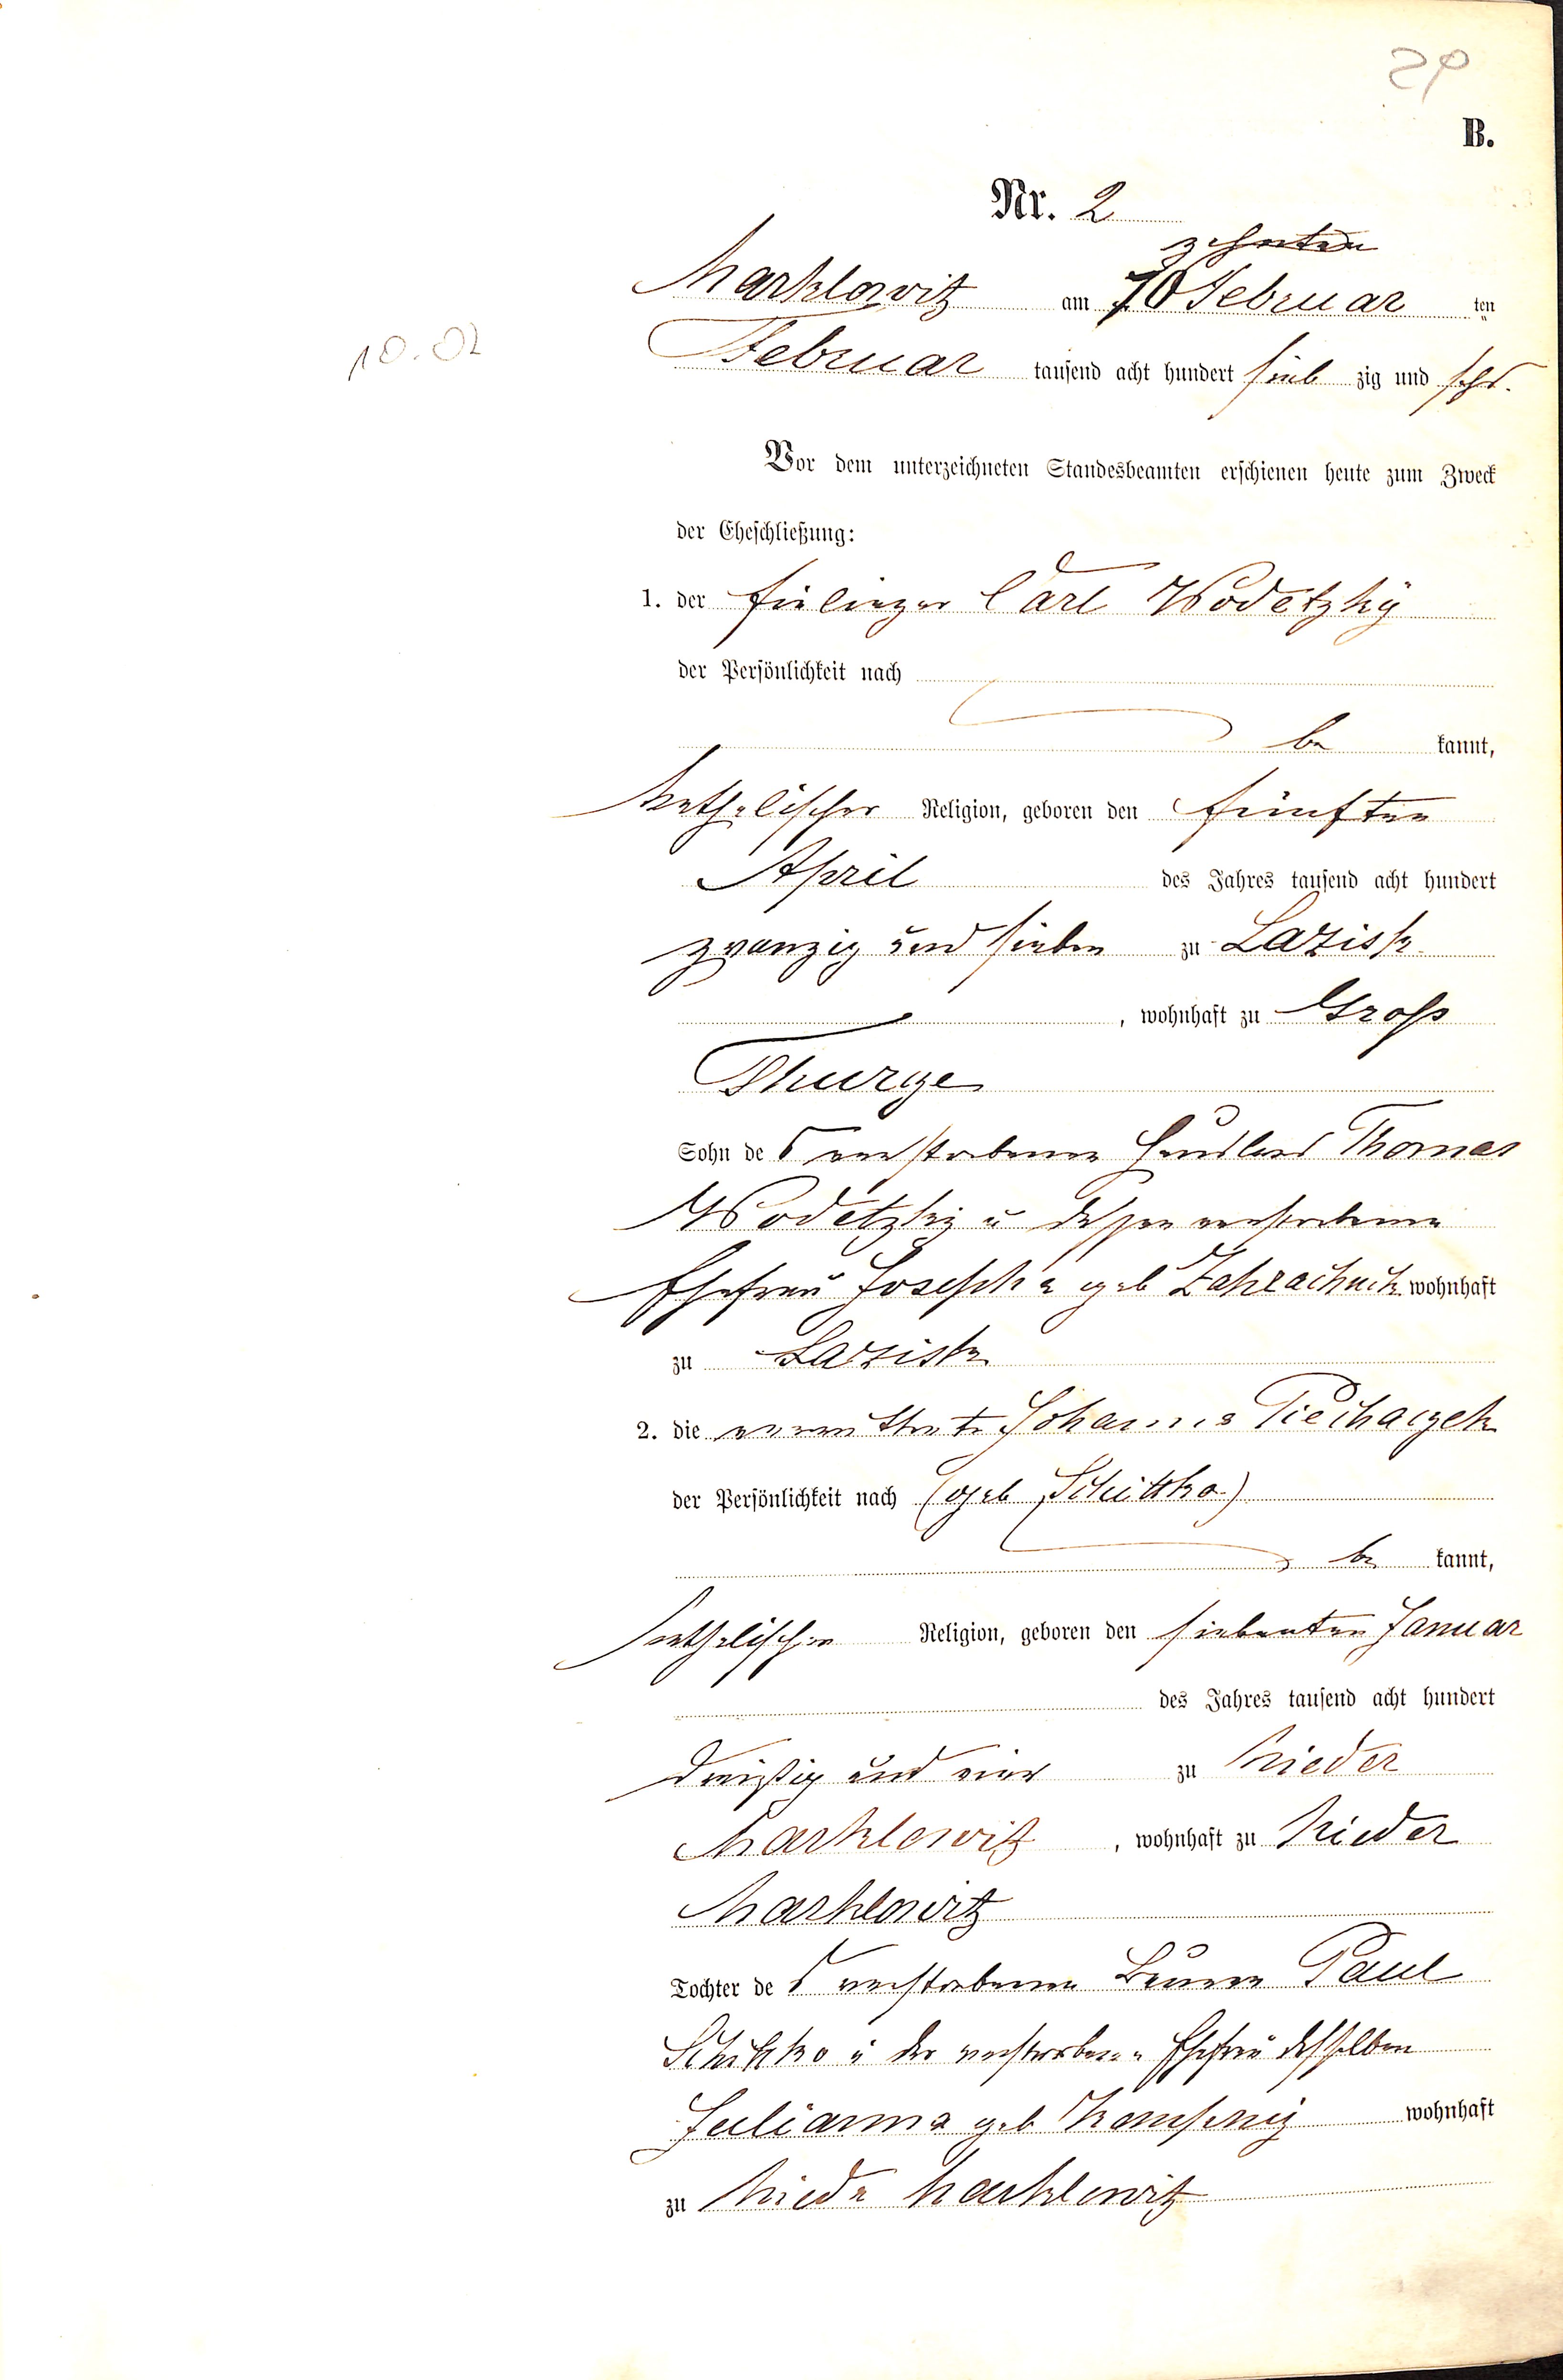 29
B.
Nr. 2
zehnten
Marklowitz am 10 Februar ten
10.02
Februar tausend acht hundert sieb zig und sechs.
Vor dem unterzeichneten Standesbeamten erschienen heute zum Zweck
der Eheschließung:
1. der Einlieger Carl Wodetzky
der Persönlichkeit nach
be kannt,
katholischer Religion, geboren den fünften
April des Jahres tausend acht hundert
zwanzig und sieben zu Lazisk
, wohnhaft zu Gross
Thurze
Sohn des verstorbenen Häuslers Thomas
Wodetzky u dessen verstorbenen
Ehefrau Josepha geb wohnhaft
zu Lazisk
2. die verwittwete Johanna Piechaczek
der Persönlichkeit nach (geb Schittko)
be kannt,
katholischer Religion, geboren den siebenten Januar
des Jahres tausend acht hundert
dreißig und vier zu Nieder
Marklowitz, wohnhaft zu Nieder
Marklowitz
Tochter des verstorbenen Bauern Paul
Schittko u der verstorbenen Ehefrau desselben
Julianna geb wohnhaft
zu Nieder Marklowitz